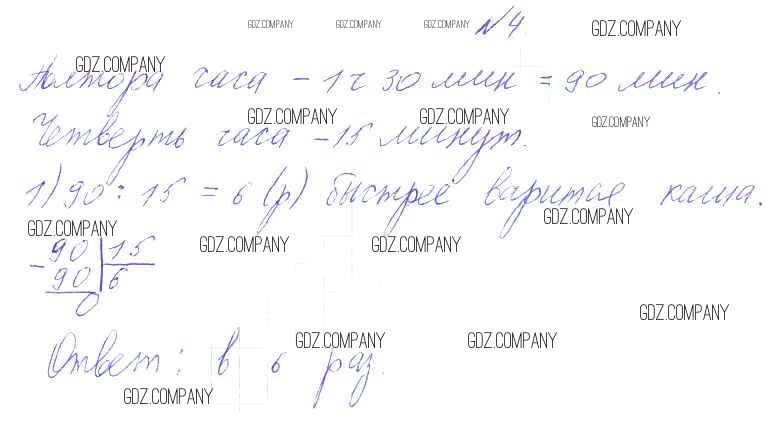 GDZ.COMPANY GDZ.COMPANY GDZ.COMPANY №4 GDZ.COMPANY
GDZ.COMPANY
Полтора часа – 1 ч 30 мин = 90 мин.
GDZ.COMPANY GDZ.COMPANY GDZ.COMPANY
Четверть часа – 15 минут.
1) 90 : 15 = 6 (р) быстрее варится каша.
GDZ.COMPANY GDZ.COMPANY
GDZ.COMPANY GDZ.COMPANY
90 | 15
– 90 | 6
0
GDZ.COMPANY
GDZ.COMPANY GDZ.COMPANY
Ответ: в 6 раз.
GDZ.COMPANY